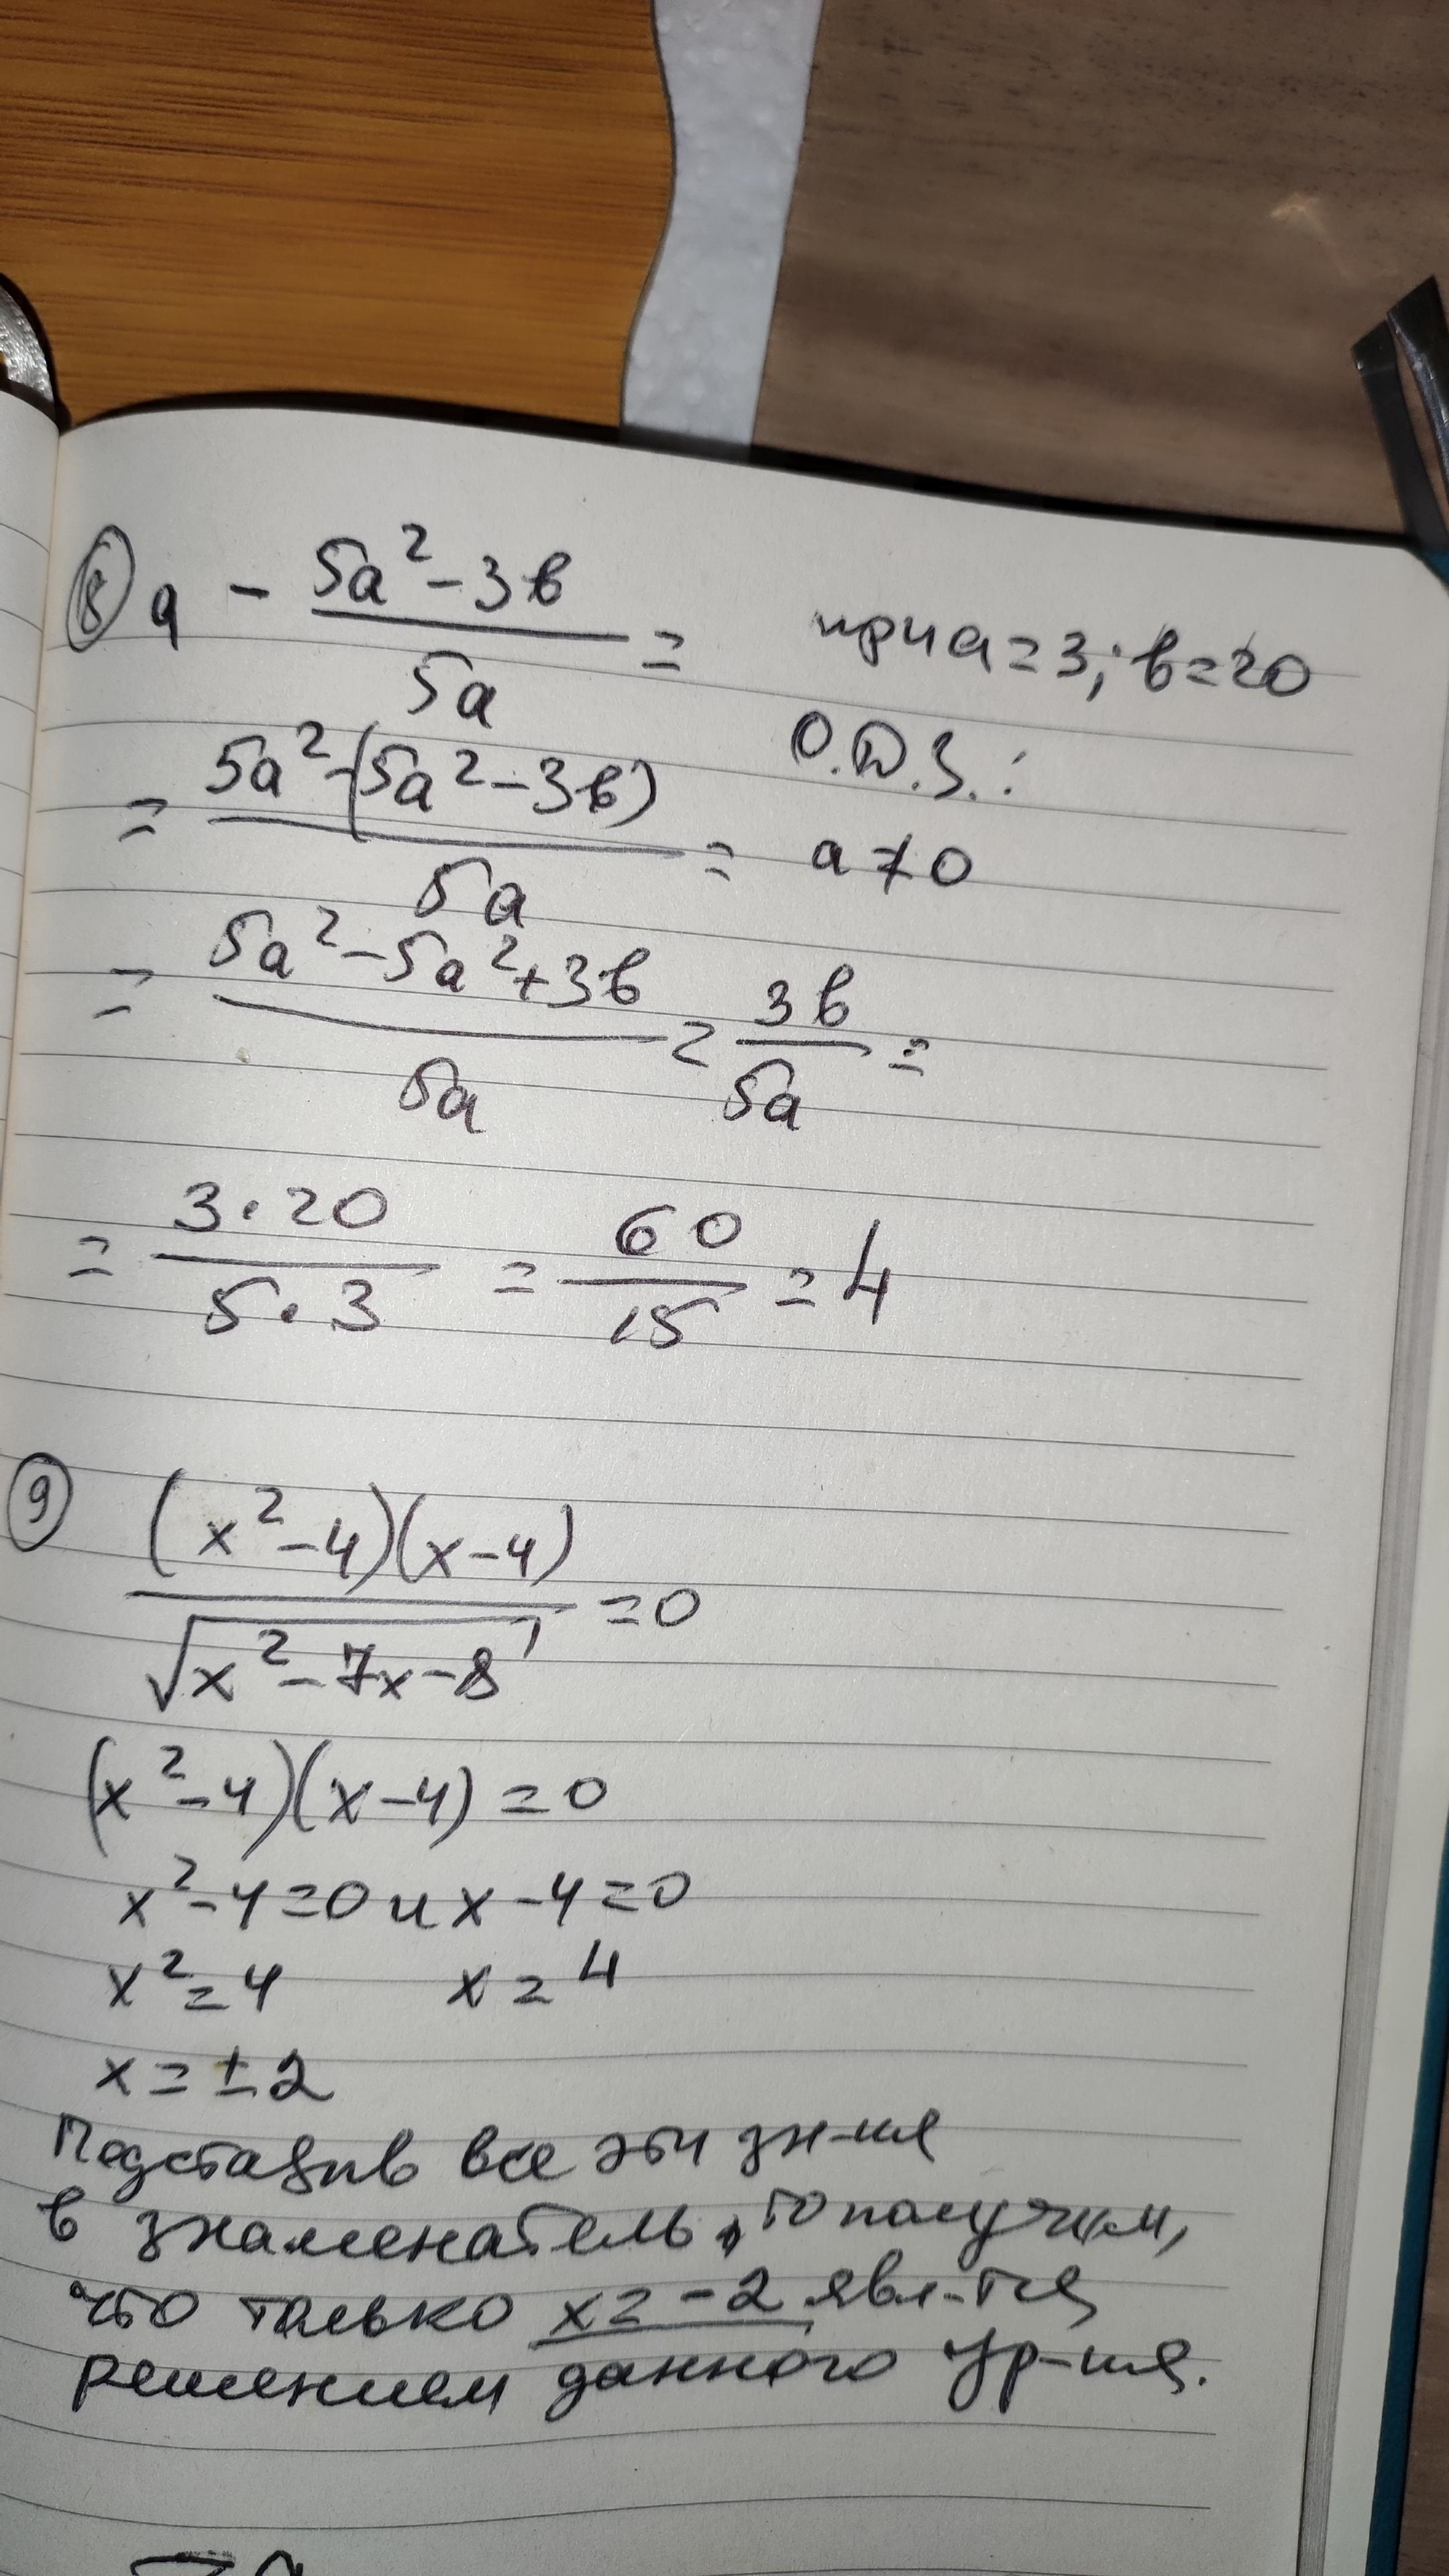 ⑧ a - (5a² - 3b)/(5a) = при a = 3; b = 20
= (5a² - (5a² - 3b))/(5a) = О.Д.З.:
a ≠ 0
= (5a² - 5a² + 3b)/(5a) = 3b/(5a) =
= (3·20)/(5·3) = 60/15 = 4
⑨ ((x² - 4)(x - 4))/√(x² - 7x - 8) = 0
(x² - 4)(x - 4) = 0
x² - 4 = 0 и x - 4 = 0
x² = 4 x = 4
x = ±2
Подставив все эти зн-ия
в знаменатель, то получим,
что только x = -2 явл-тся
решением данного ур-ия.